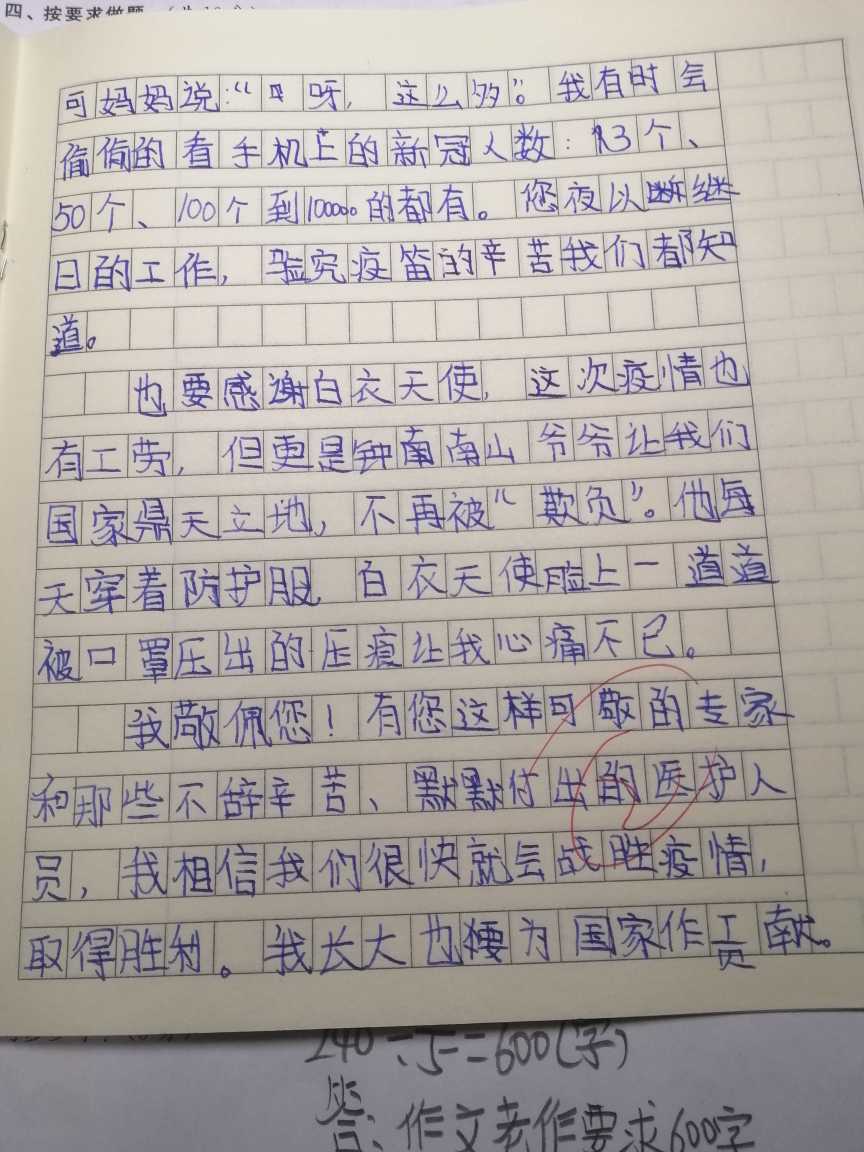 四、按要求做题。
可妈妈说：“呀，这么多”。我有时会
偷偷的看手机上的新冠人数：13个、
50个、100个到10000的都有。您夜以断继
日的工作，验究疫笛的辛苦我们都知
道。
也要感谢白衣天使，这次疫情也
有工劳，但更是钟南南山爷爷让我们
国家鼎天立地，不再被“欺负”。他每
天穿着防护服，白衣天使脸上一道道
被口罩压出的压痕让我心痛不已。
我敬佩您！有您这样可敬的专家
和那些不辞辛苦、默默付出的医护人
员，我相信我们很快就会战胜疫情，
取得胜利。我长大也要为国家作贡献。
240÷ =600(字)
答：作文老作要求600字